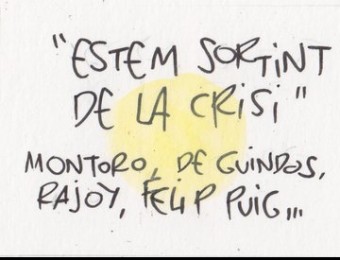 "ESTEM SORTINT
DE LA CRISI"
MONTORO, DE GUINDOS,
RAJOY, FELIP PUIG...